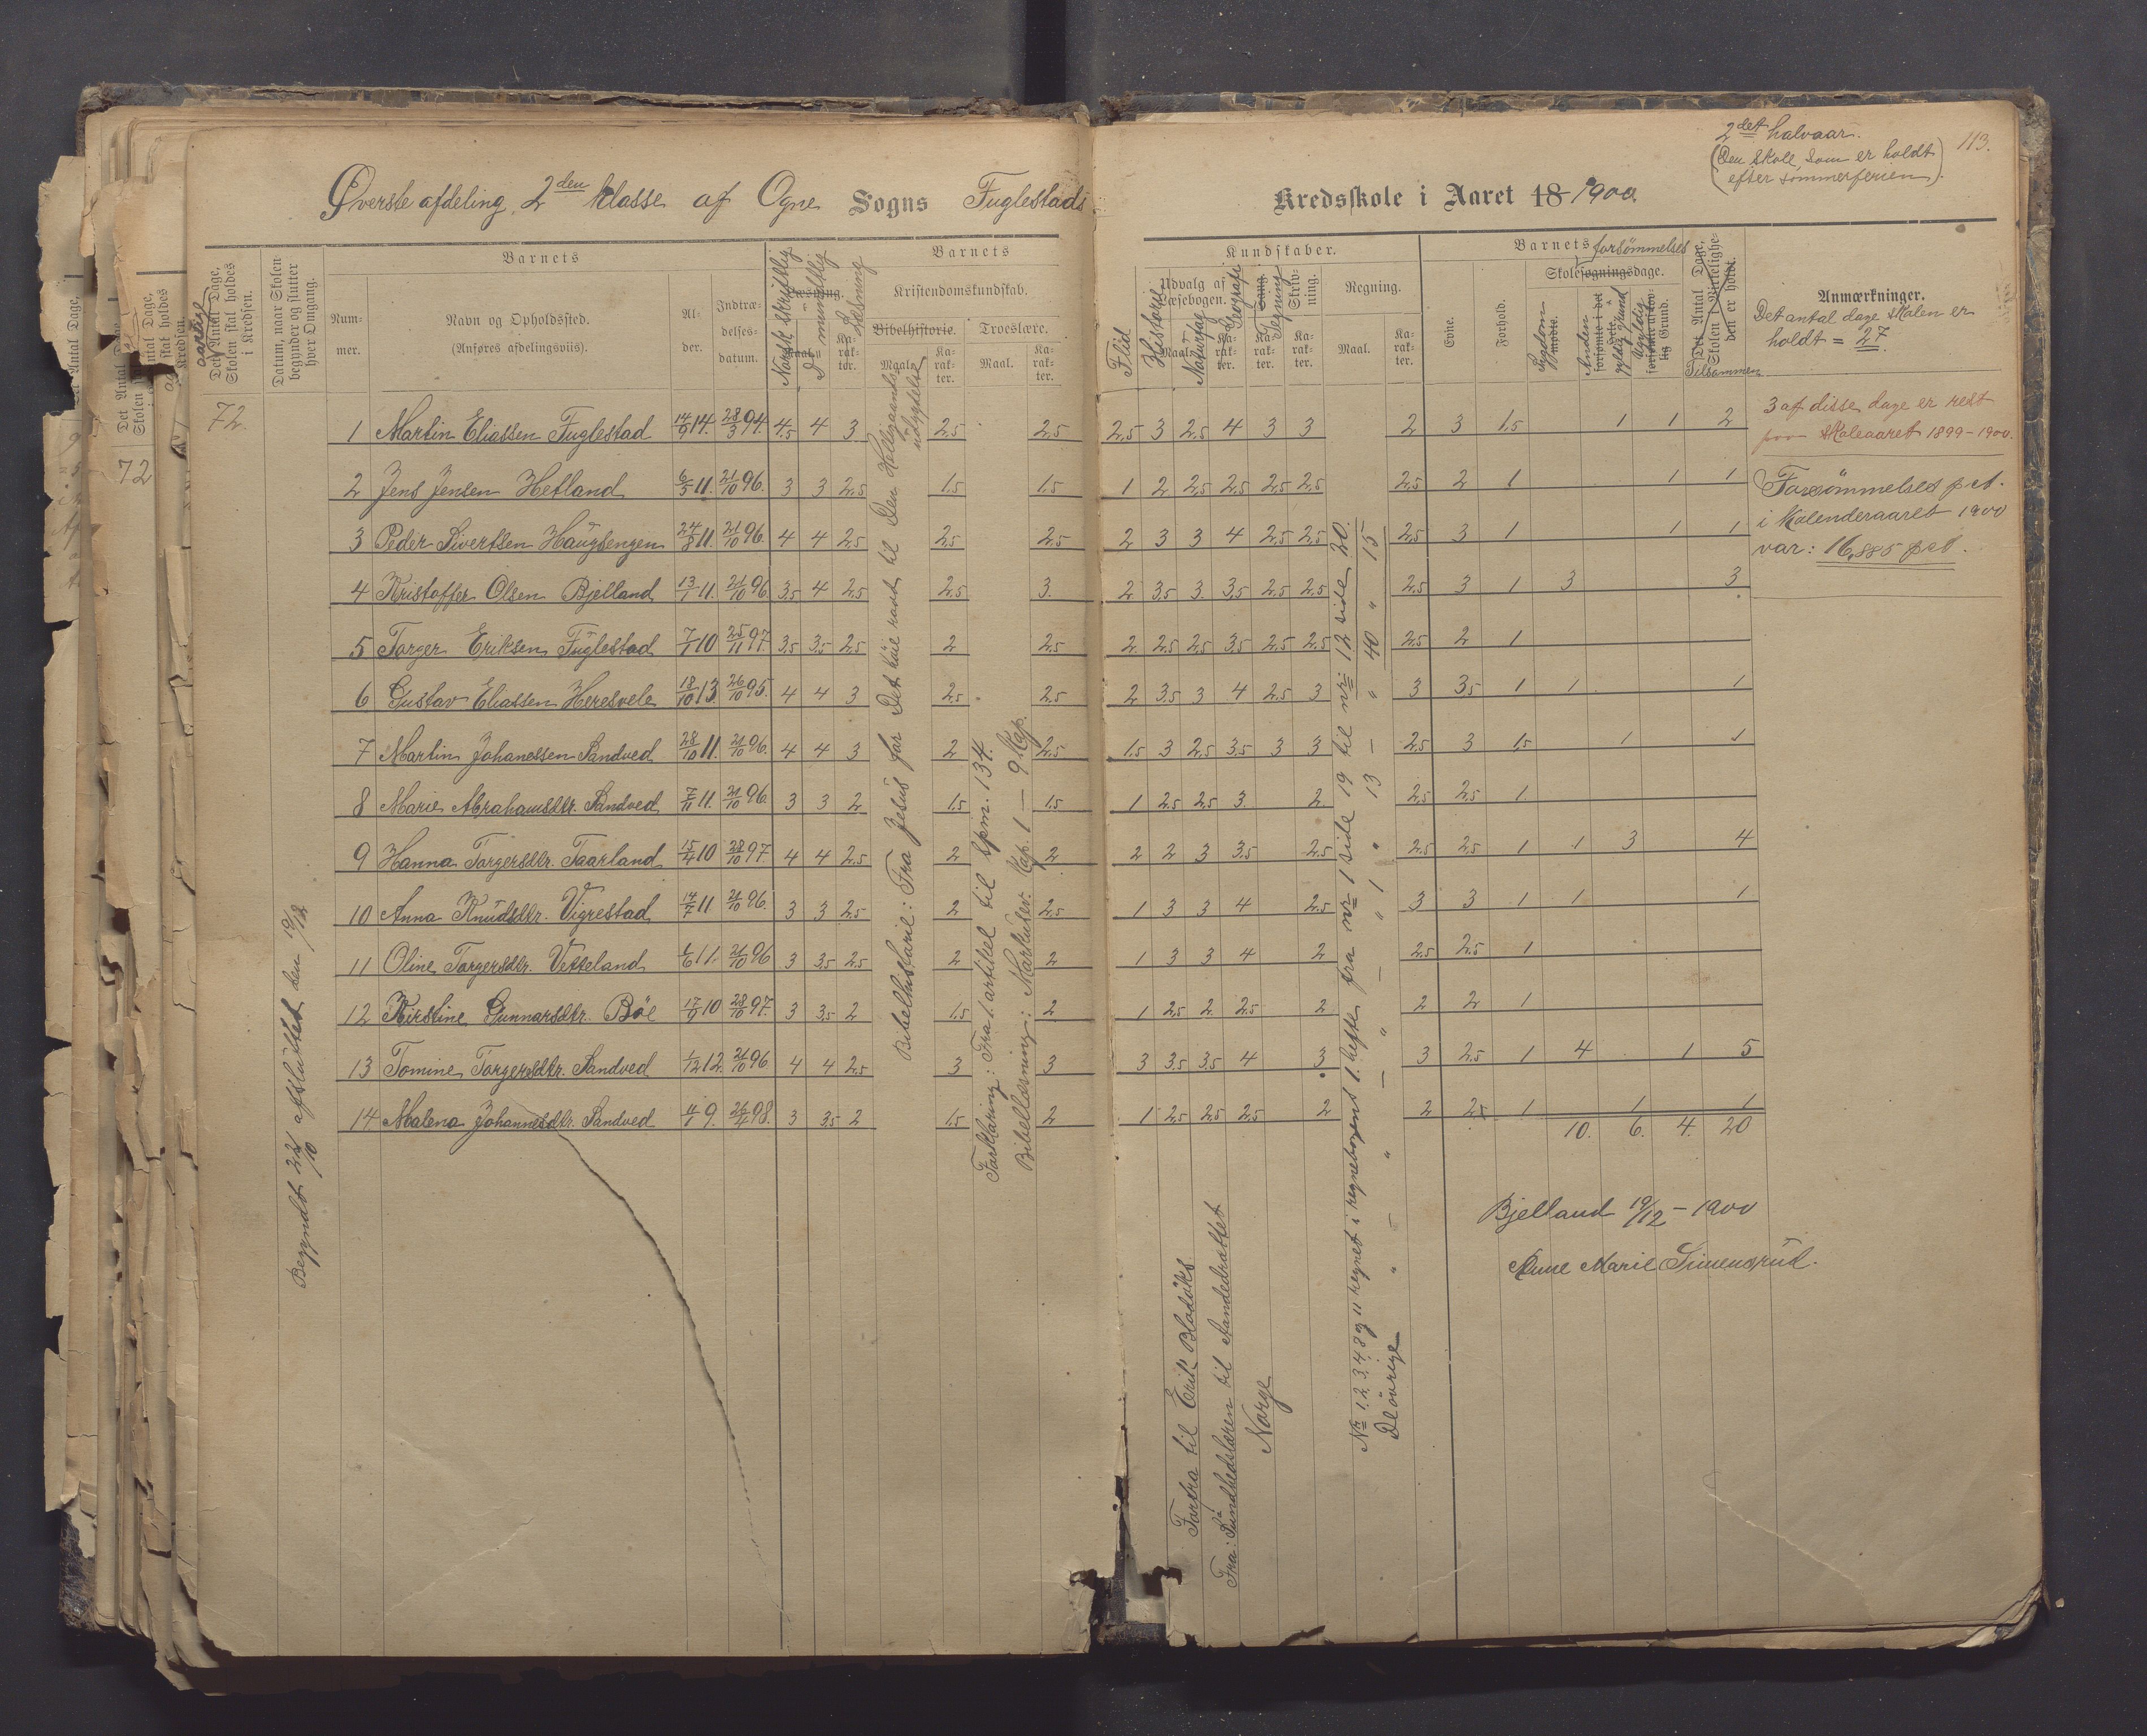 2det halvaar.
(Den skole, som er holdt
efter sommerferien).
113.
Øverste afdeling, 2den klasse af Ogne Sogns Fuglestads
Kredsskole i Aaret 18 1900.
aarlige
Det Antal Dage,
Skolen skal holdes
i Kredsen.
Datum, naar Skolen
begynder og slutter
hver Omgang.
Barnets
Num-
mer.
Navn og Opholdssted.
(Anføres afdelingsviis).
Al-
der.
Indtræ-
delses-
datum.
Norsk skriftlig
Do mundtlig
Læsning
Barnets
Kristendomskundskab.
Bibelhistorie.
Troeslære.
Maal.
Ka-
rak-
ter.
Maal.
Ka-
rak-
ter.
Kundskaber.
Flid
Udvalg af
Læsebogen.
Historie
Naturfag
Geografi
Sang.
Tegning
Skriv-
ning.
Regning.
Maal.
Ka-
rak-
ter.
Evne.
Forhold.
Barnets forsømmelses
Skolesøgningsdage.
Sygdom
mødte.
Anden
gyldig grund
Ugyldig
Grund.
Det Antal Dage,
Skolen i Virkelighe-
den er holdt.
Tilsammen
Anmærkninger.
Det antal dage skolen er
holdt = 27.
3 af disse dage er rest
fra skoleaaret 1899-1900.
Forsømmelses pct.
i kalenderaaret 1900
var: 16,885 pct.
72.
1 Martin Eliassen Fuglestad 14/9 14. 28/3 94. 4,5 4 3 2,5 2,5 2,5 3 2,5 4 3 3 2 3 1,5 1 1 2
2 Jens Jensen Hetland 6/5 11. 21/10 96. 3 3 2,5 1,5 1,5 1 2 2,5 2,5 2,5 2,5 2,5 2 1 1 1
3 Peder Sivertsen Haugtengen 24/8 11. 21/10 96. 4 4 2,5 2,5 2,5 2 3 3 4 2,5 2,5 2,5 3 1 1 1
4 Kristoffer Olsen Bjelland 13/1 11. 21/10 96 3,5 4 2,5 2,5 3. 2 3,5 3. 3,5 2,5 2,5 2,5 3 1 3 3
5 Torger Eriksen Fuglestad 7/1 10 25/11 97. 3,5 3,5 2,5 2 2,5 2. 2,5 2,5 3,5 2,5 2,5 2,5 2 1
6 Gustav Eliassen Heresvele 18/10 13. 26/10 95. 4 4 3 2,5 2,5 2 3,5 3 4 2,5 3 3 3,5 1 1 1
7 Martin Johanessen Sandved 28/10 11. 21/10 96. 4 4 3 2 2,5 1,5 3 2,5 3,5 3 3 2,5 3 1,5 1 1
8 Marie Abrahamsdtr. Sandved 7/11 11. 21/10 96. 3 3 2 1,5 1,5 1 2,5 2,5 3. 2 2,5 2,5 1.
9 Hanna Torgersdtr. Taarland 15/4 10 28/10 97. 4 4 2,5 2 2 2 2 3 3,5 2,5 2,5 2,5 1 1 3 4
10 Anna Knudsdtr. Vigrestad 14/7 11. 21/10 96. 3 3 2,5 2 2,5 1 3 3 4 2,5 3 3 1 1 1
11 Oline Torgersdtr. Vetteland 6/6 11. 21/10 96 3 3,5 2,5 2 2 1 3 3 4 2 2,5 2,5 1
12 Kirstine Gunnarsdtr. Böe 17/9 10 28/10 97. 3 3,5 2 1,5 2 1 2,5 2 2,5 2 2 2 1
13 Tomine Torgersdtr. Sandved 1/12 12. 21/10 96. 4 4 2,5 3 3 3 3,5 3,5 4 3 3 2,5 1 4 1 5
14 Malena Johannesdtr. Sandved 4/1 9. 26/4 98. 3 3,5 2 1,5 2 1 2,5 2,5 2,5 2 2 2,5 1 1 1
10. 6. 4. 20
Begyndt 22/10 afsluttet den 19/12
Bibelhistorie: Fra Jesus for Det höie raad til Den Helligaands
udgydelse
Forklaring: Fra 1. artikel til spm. 134.
Bibellæsning: Markusev. Kap. 1 – 9 Kap.
Fortra til Erik Blodöks
Fra: Sundhedslæren til Aandedrættet
Norge
Nr 1. 2. 3. 4. 8 og 11 regnet i regnebogens 1. hefte fra nr 1 side 19 til nr 12 side 20.
De övrige " – " – " – " 1 " 13 – " 40 " 15
Bjelland 19/12 – 1900
Anne Marie Simensrud.
Det Antal Dage,
72